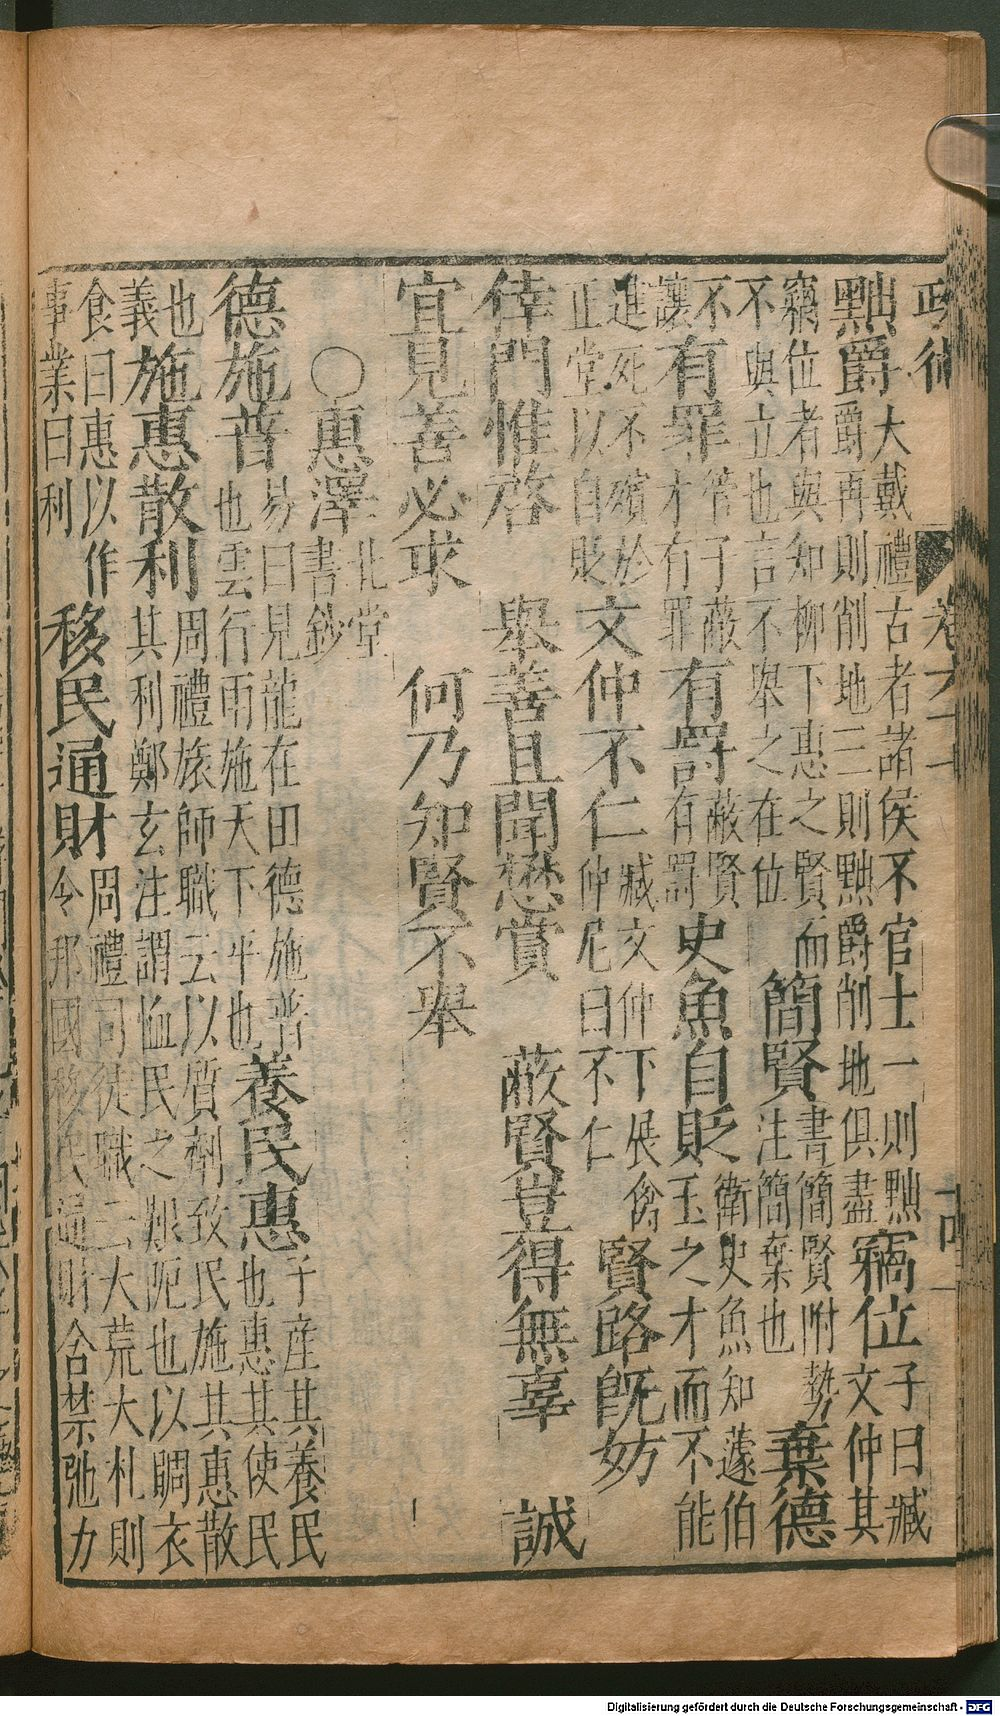 政術 卷六十
黜爵大戴禮古者諸侯不官士一則黜爵再則削地三則黜爵削地俱盡竊位子曰臧文仲其
竊位者與知柳下惠之賢而不與立也言不舉之在位簡賢書簡賢附勢注簡棄也棄德
不有罪管子蔽讓才有罪有罰蔽賢有罰史魚自貶衛史魚知蘧伯玉之才而不能
進死不殯於正堂以自貶文仲不仁臧文仲下展禽仲尼曰不仁賢路既妨
倖門惟啓 舉善且聞懋賞 蔽賢豈得無辜 誠
宜見善必求 何乃知賢不舉
○惠澤北堂書鈔
德施普易曰見龍在田德施普也雲行雨施天下平也養民惠子產其養民也惠其使民
也義施惠散利周禮旅師職云以質劑致民施其惠散其利鄭玄注謂恤民之艱阨也以賙衣
食曰惠以作事業曰利移民通財周禮司徒職云大荒大札則令邦國移民通財舍禁弛力
Digitalisierung gefördert durch die Deutsche Forschungsgemeinschaft - DFG